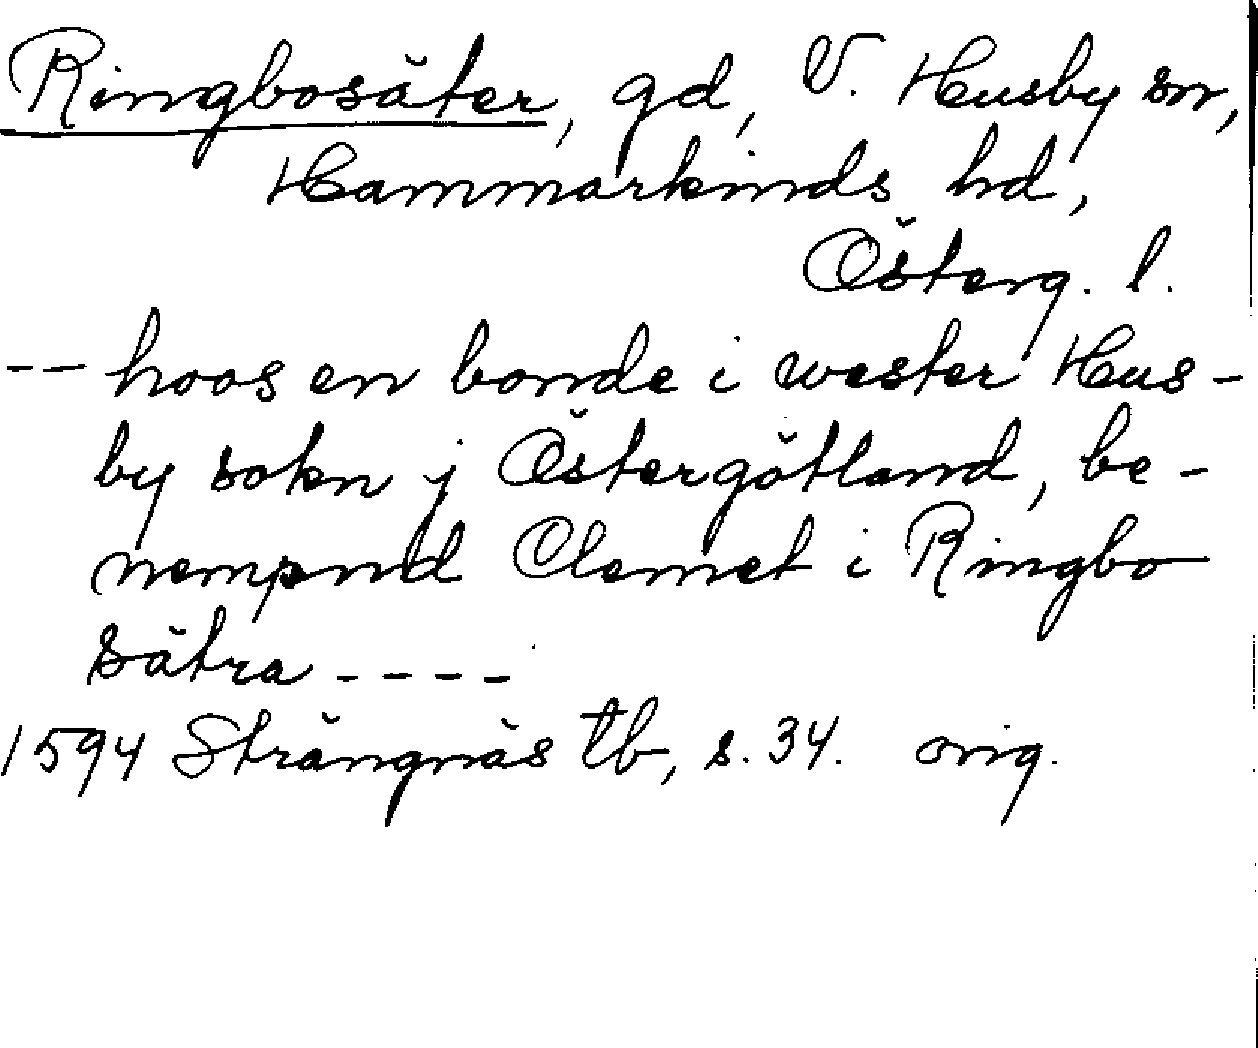 Ringbosäter, gd, V. Husby sn,
Hammarkinds hd,
Österg. l.
-- hoos en bonde i wester Hus-
by sokn j Östergötland, be-
nempnd Clemet i Ringbo
sätra ----
1594 Strängnäs tb, s. 34. orig.